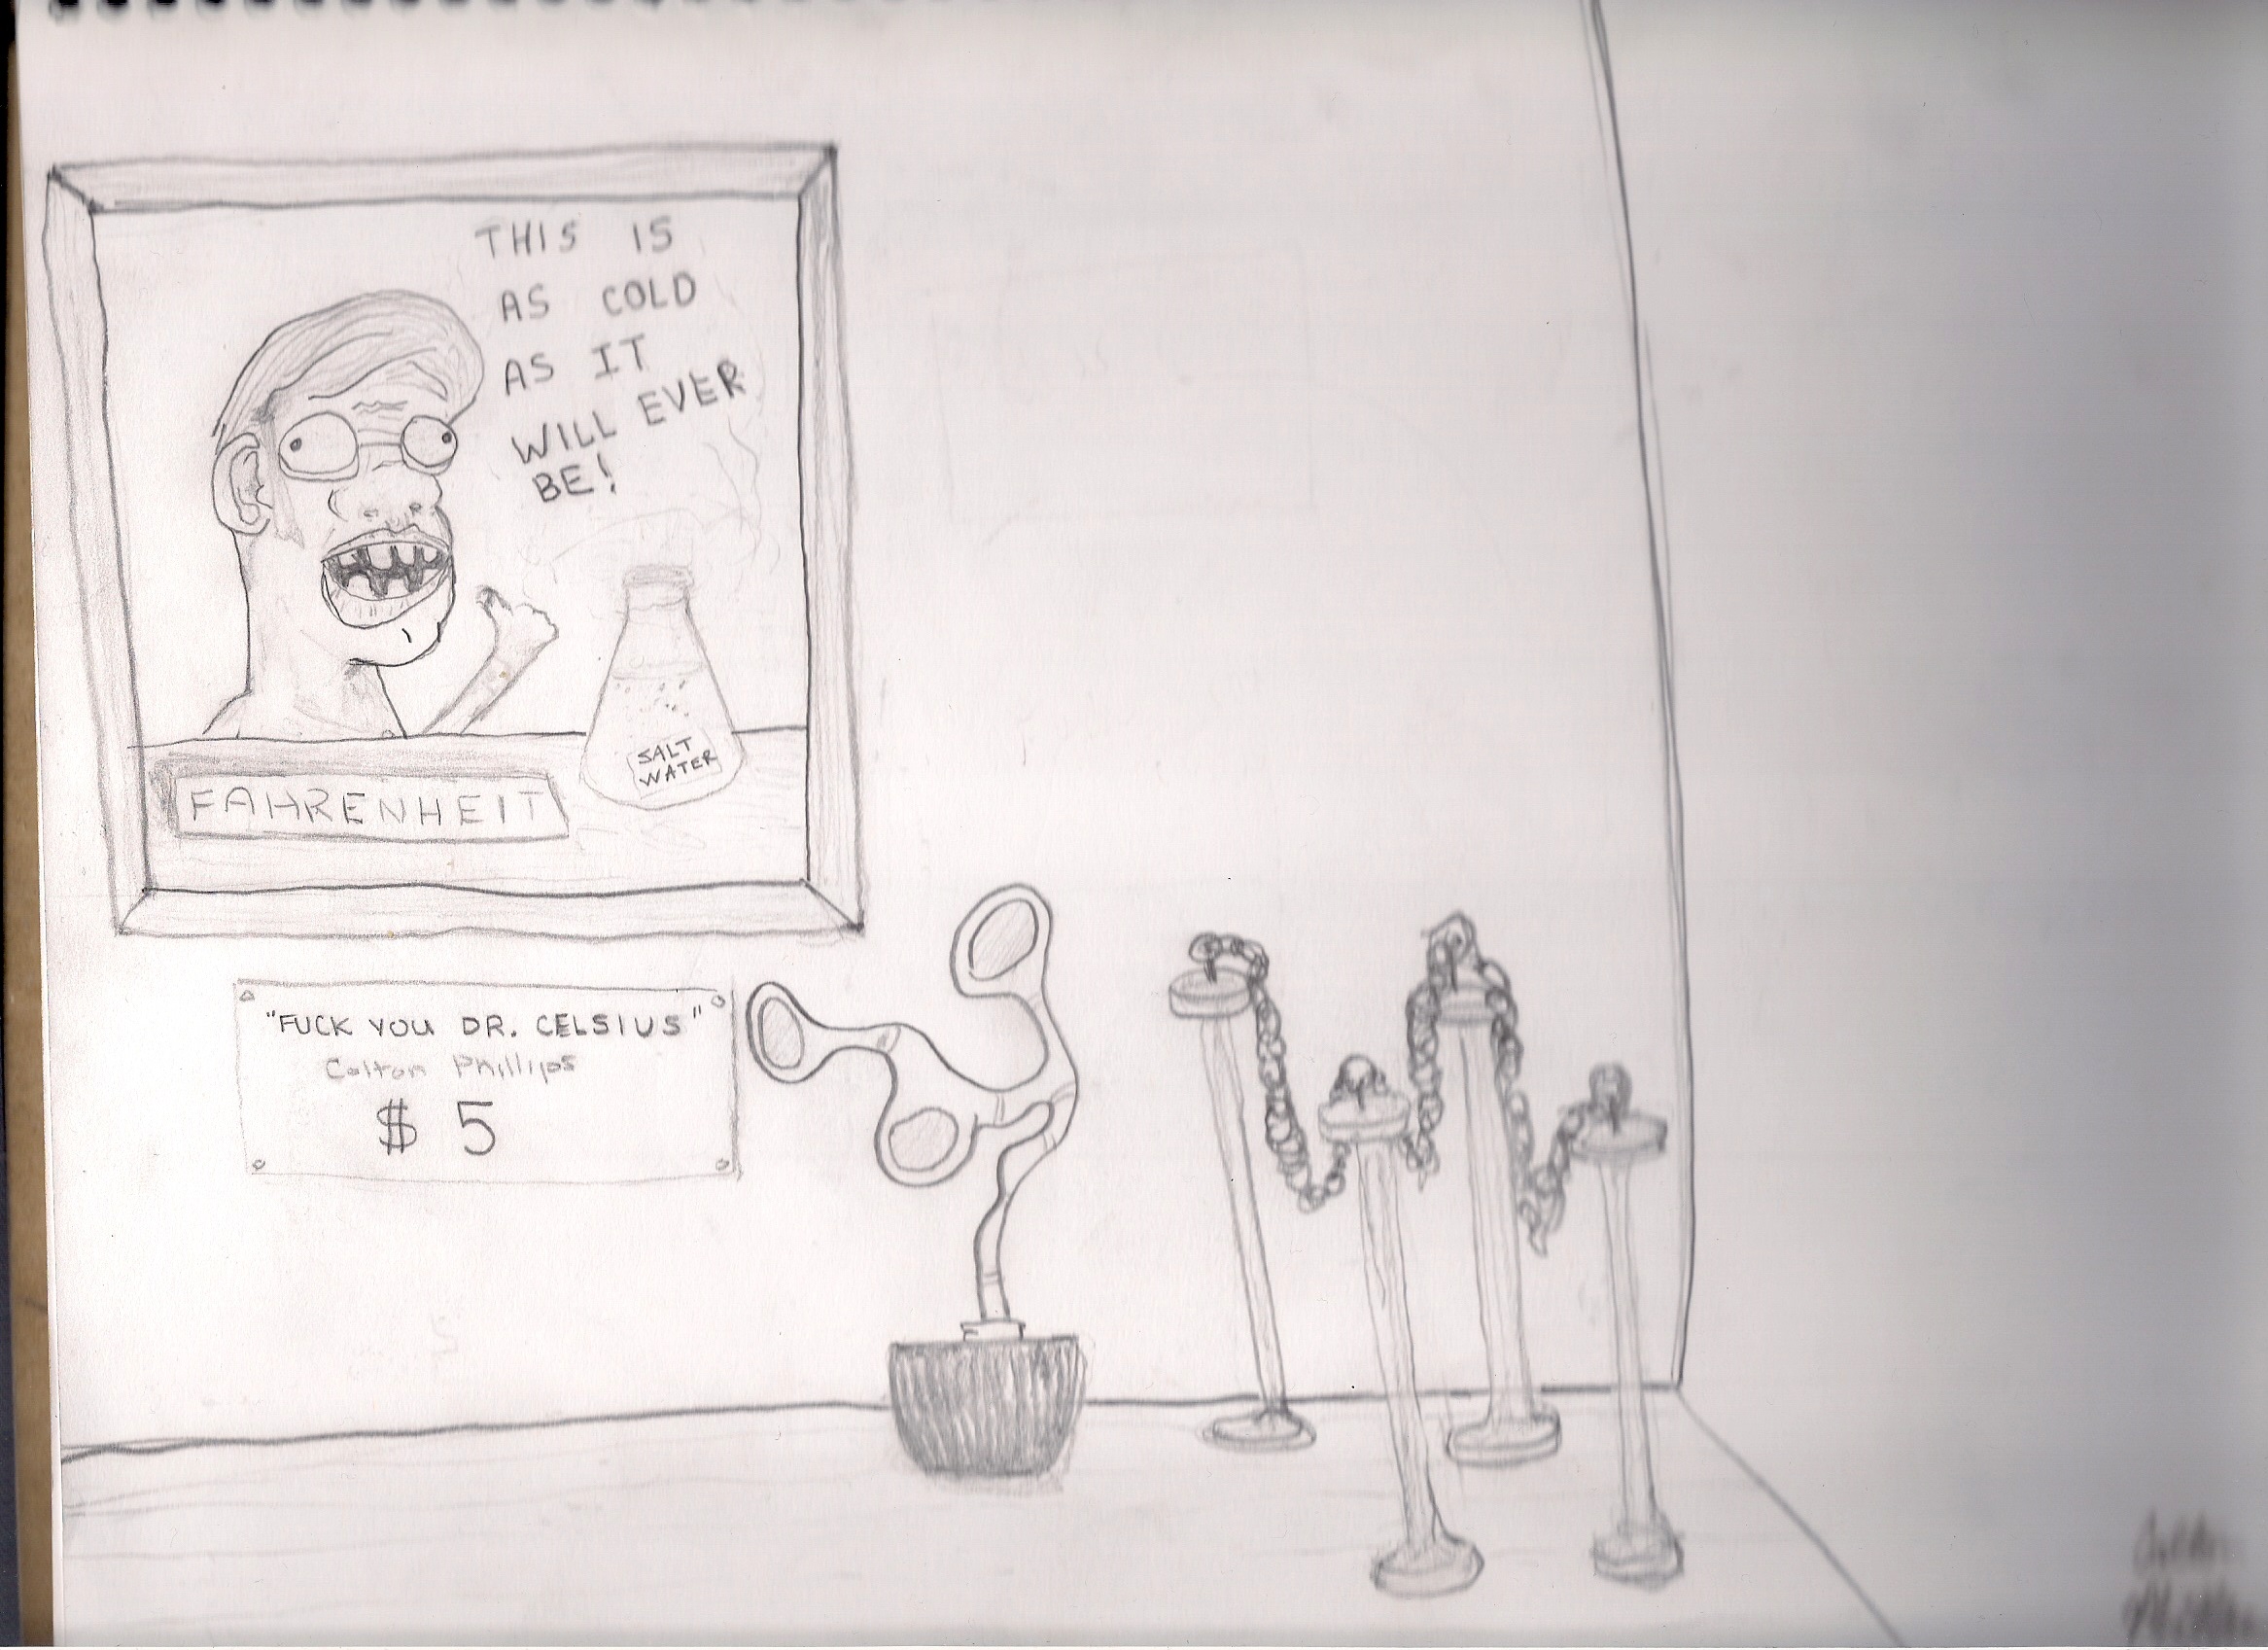 THIS IS
AS COLD
AS IT
WILL EVER
BE!
SALT
WATER
FAHRENHEIT
"FUCK YOU DR. CELSIUS"
Colton Phillips
$ 5